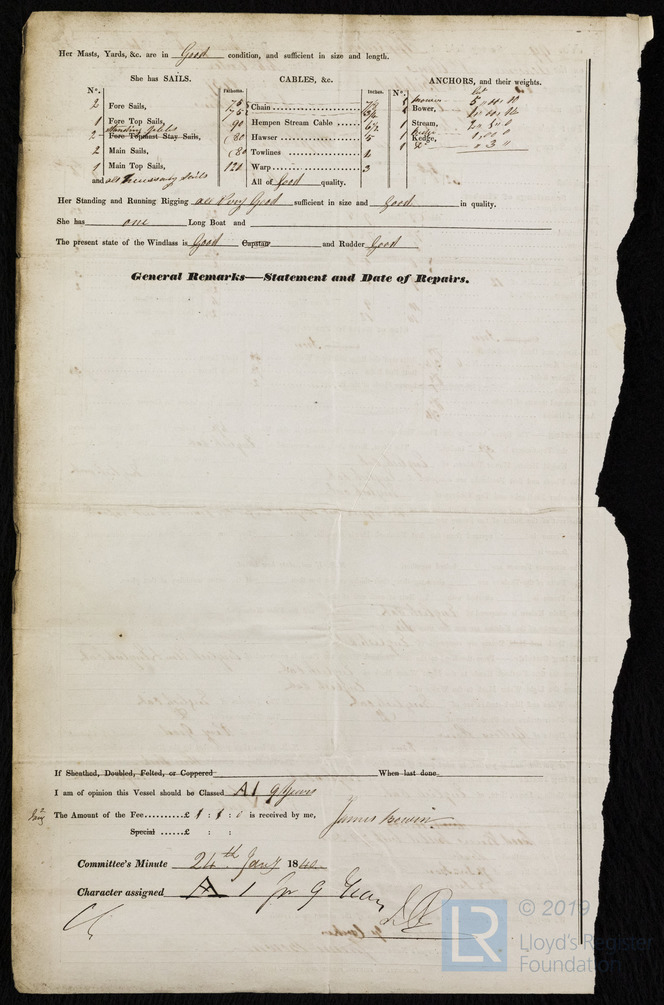 Her Masts, Yards, &c. are in Good condition, and sufficient in size and length.
She has SAILS. CABLES, &c. ANCHORS, and their weights.
N°. Fathoms. Inches. N°.
2 Fore Sails, 75 Chain 5 " 0
1 Fore Top Sails, 90 Hempen Stream Cable 1 Bower,
2 Fore Topmast Stay Sails, 80 Hawser 5 1 Stream,
2 Main Sails, 80 Towlines 1 Kedge,
1 Main Top Sails, 120 Warp 3
and all necessary sails All of Good quality.
Her Standing and Running Rigging all Very Good sufficient in size and Good in quality.
She has one Long Boat and
The present state of the Windlass is Good Capstan and Rudder Good
General Remarks—Statement and Date of Repairs.
If Sheathed, Doubled, Felted, or Coppered When last done
I am of opinion this Vessel should be Classed A1 9 Years
The Amount of the Fee......£ 1 : 1 : 0 is received by me,
Special ......£ : :
Committee's Minute 24th Jany 1840
Character assigned A 1 for 9 Years
LR
© 2019
Lloyd's Register
Foundation